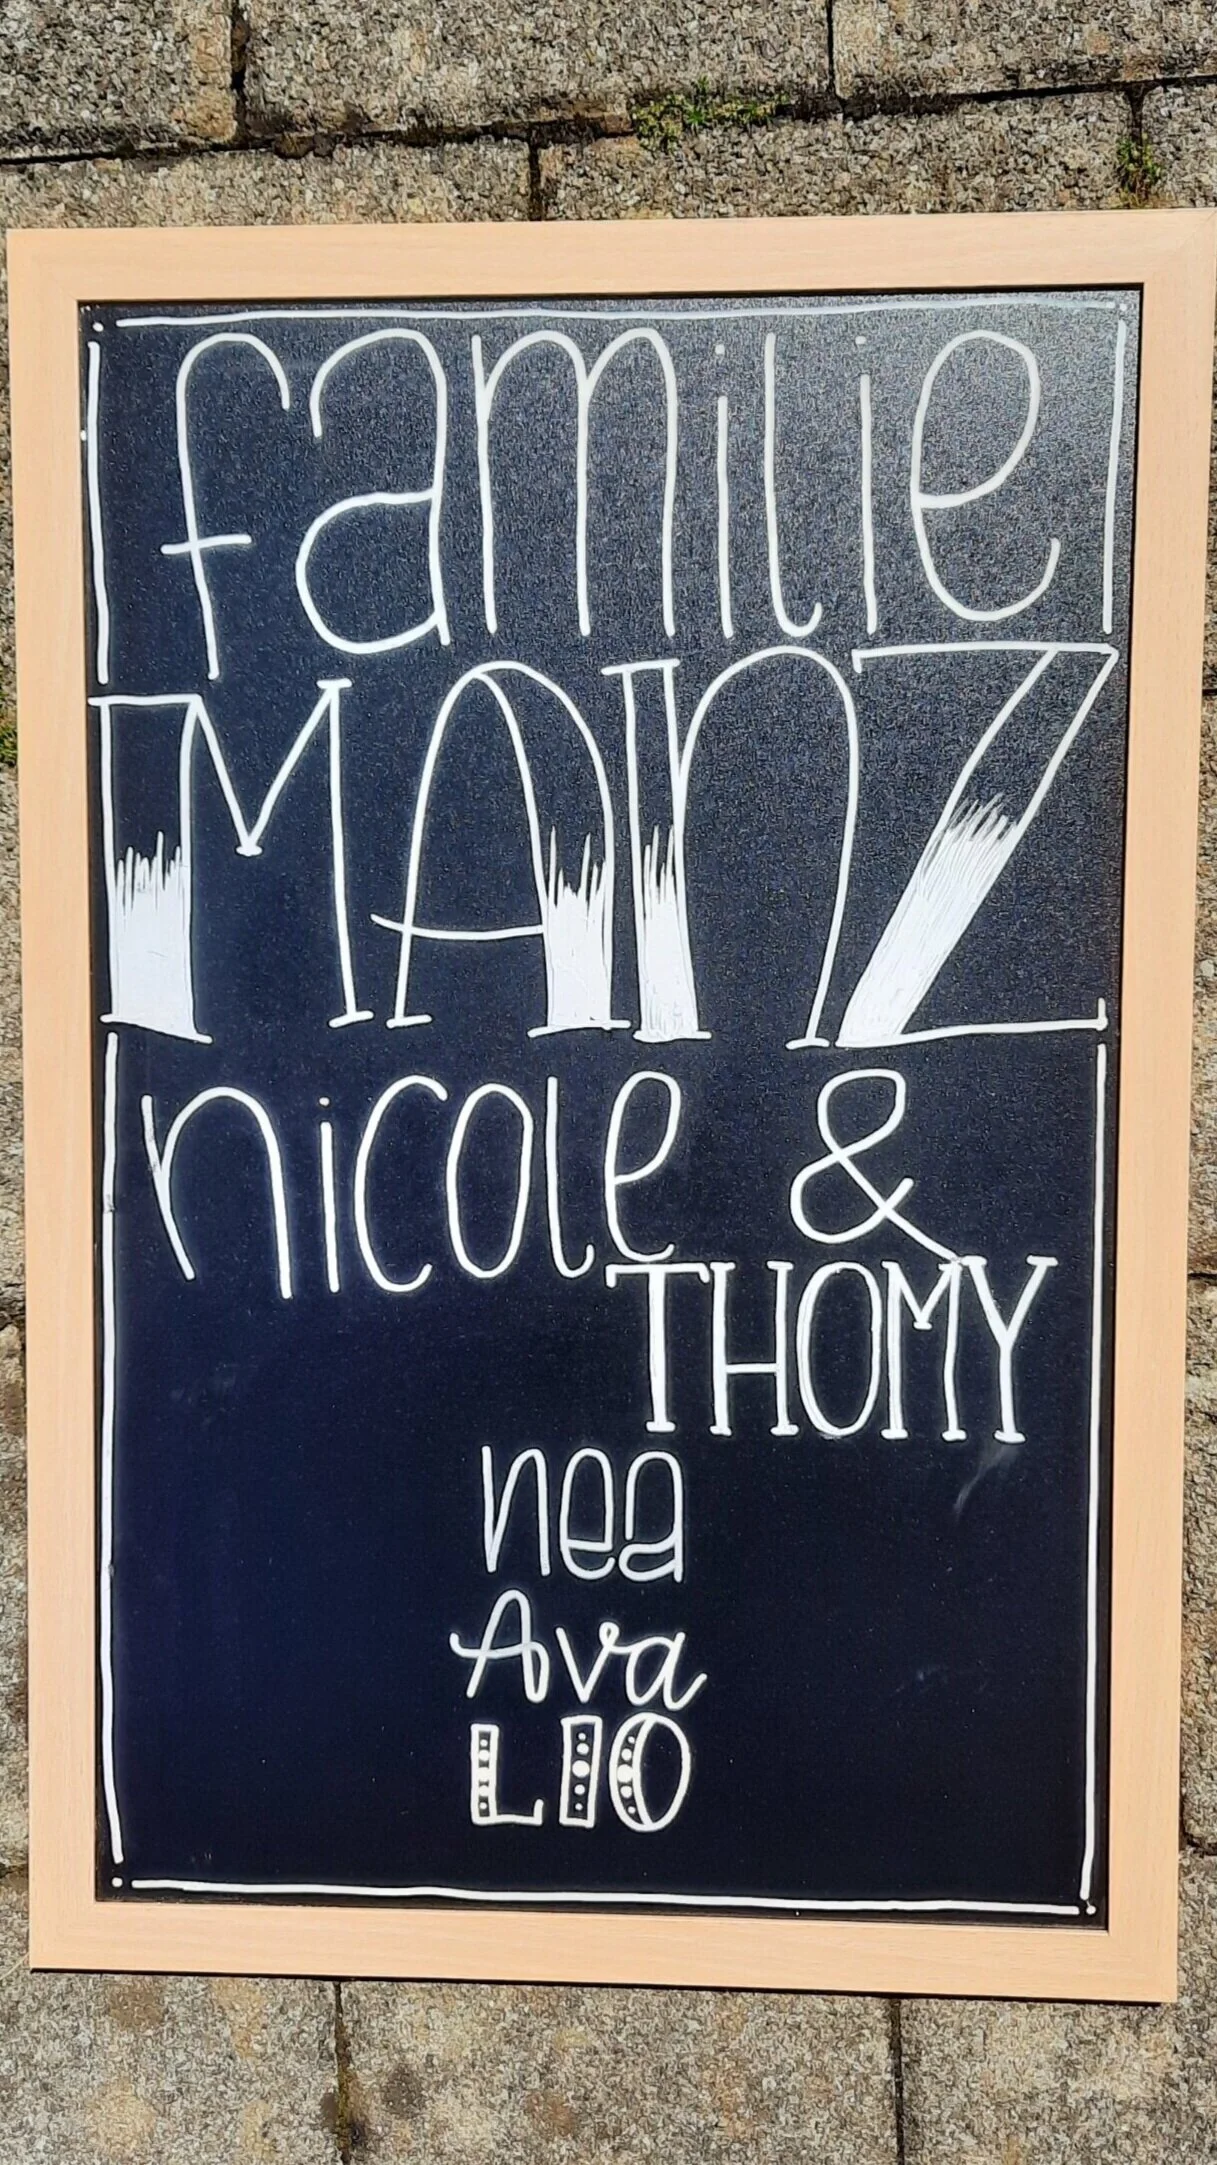 familie
MANZ
nicole &
THOMY
nea
Ava
LIO